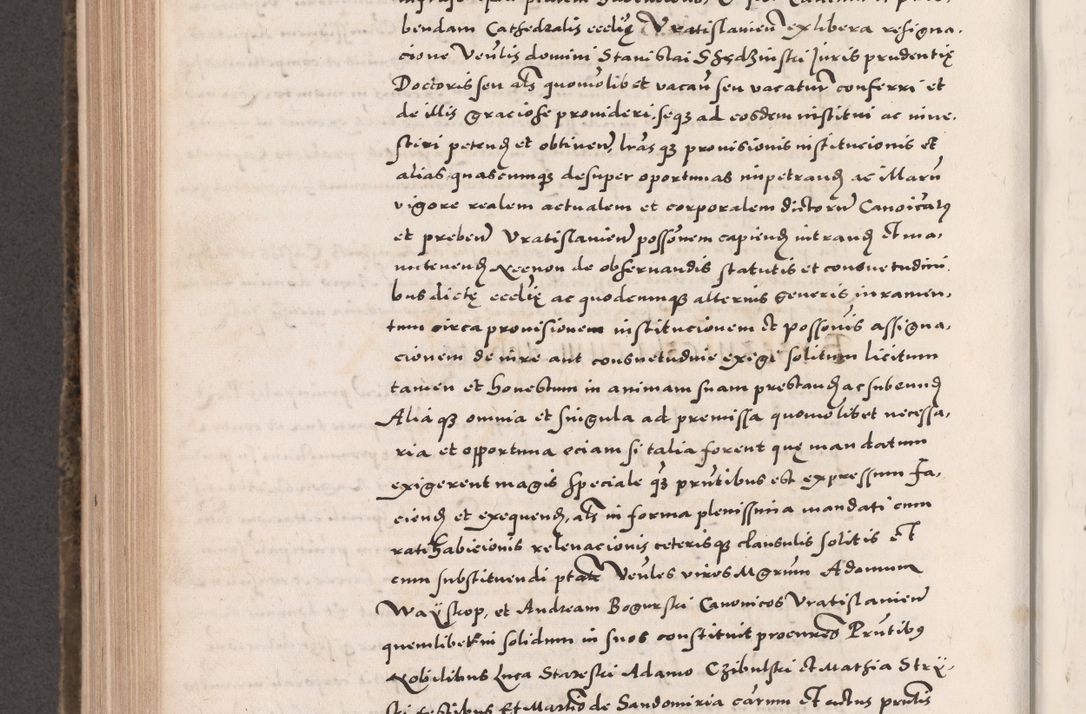 bendam Cathedralis ecclię Vratislavieñ ex libera resigna,
cione Veñlis domini Stanislai Dssdzinski Juris prudentię
Doctoris seu als quomolibet vacañ seu vacatur conferri et
de illis graciose provideri, seqꝫ ad eosdem institui ac inve,
stiri petenđ et obtineñ, lras qꝫ provisionis institucionis et
alias quascunqꝫ desuper oportunas impetranđ ac illarũ
vigore realem actualem et corporalem dictorũ Canoicatꝯ
et prebeñ Vratislavieñ possonem capienđ intranđ et ma,
nutenenđ Necnon de observandis statutis et consuetudini
bus dictę ecclię ac quodcumqꝫ alterius generis iuramen,
tum circa provisionem institucionem et possonis assigna,
cionem de iure aut consuetudine exigi solitum licitum
tamen et honestum in animam suam prestanđ ac subeunđ
Aliaqꝫ omnia et singula ad premissa quomolibet necessa,
ria et opportuna eciam si talia forent quę mandatum
exigerent magis speciale qꝫ pñtibus est expressum fa,
ciend et exequenđ, als in forma plenissima mandati cum
ratihabicionis relevacionis ceterisqꝫ clausulis solitis et
cum substituendi ptate Veñles viros Mgrum Adamum
Wayskop, et Andream Bogurski Canonicos Vratislavieñ
quemlibet in solidum in suos constituit procures Pñtibꝰ
Nobilibus Luca Stareski Adamo Czibulski et Mathia Strÿ,
ski testibus Et Martio de Sandomiria carum et actus pñtis